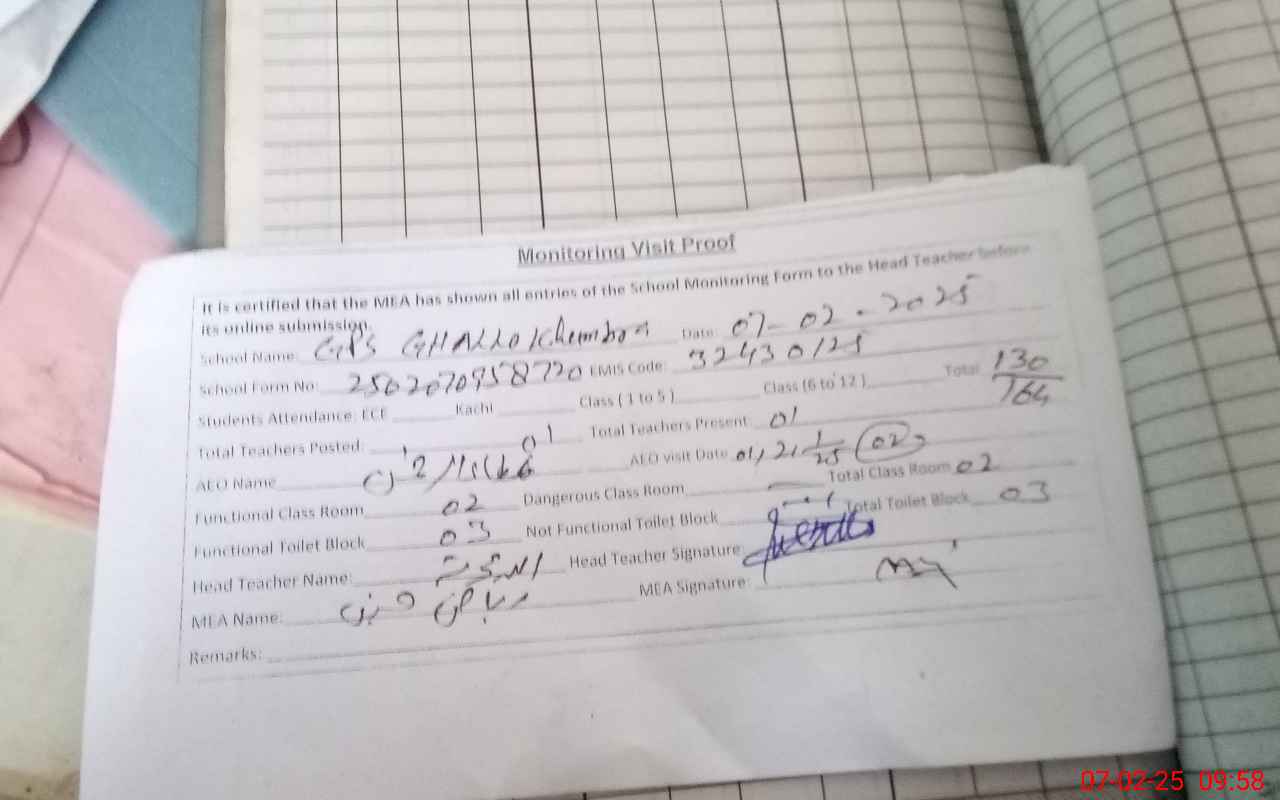 Monitoring Visit Proof
It is certified that the MEA has shown all entries of the School Monitoring Form to the Head Teacher before
its online submission.
School Name: GPS GHALLO Date: 07-02-2025
School Form No: 2502070958720 EMIS Code: 32430125
Students Attendance: ECE Kachi Class ( 1 to 5 ) Class (6 to 12 ) Total 130/164
Total Teachers Posted: 01 Total Teachers Present: 01
AEO Name AEO visit Date 01, 21 1/25 02
Functional Class Room 02 Dangerous Class Room — Total Class Room 02
Functional Toilet Block 03 Not Functional Toilet Block Total Toilet Block 03
Head Teacher Name: Head Teacher Signature
MEA Name: ریاض MEA Signature:
Remarks:
07-02-25 09:58